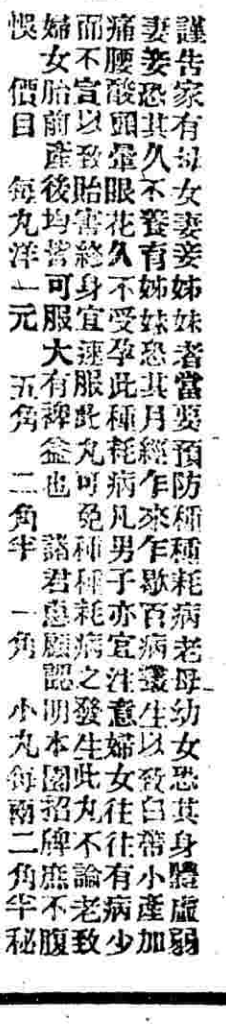 謹告家有母女妻妾姊妹者當要預防種種耗病老母幼女恐其身體虛弱
妻妾恐其久不養有姊妹恐其月經乍來乍歇百病叢生以致白帶小產加
痛腰酸頭暈眼花久不受孕此種耗病凡男子亦宜注意婦女往往有病少
而不宣以致貽害終身宜速服此丸可免種種耗病之發生此丸不論老致
婦女胎前產後均皆可服大有裨益也 諸君惠顧認明本園招牌庶不腹
悞 價目 每丸洋一元 五角 二角半 一角 小丸每兩二角半秘